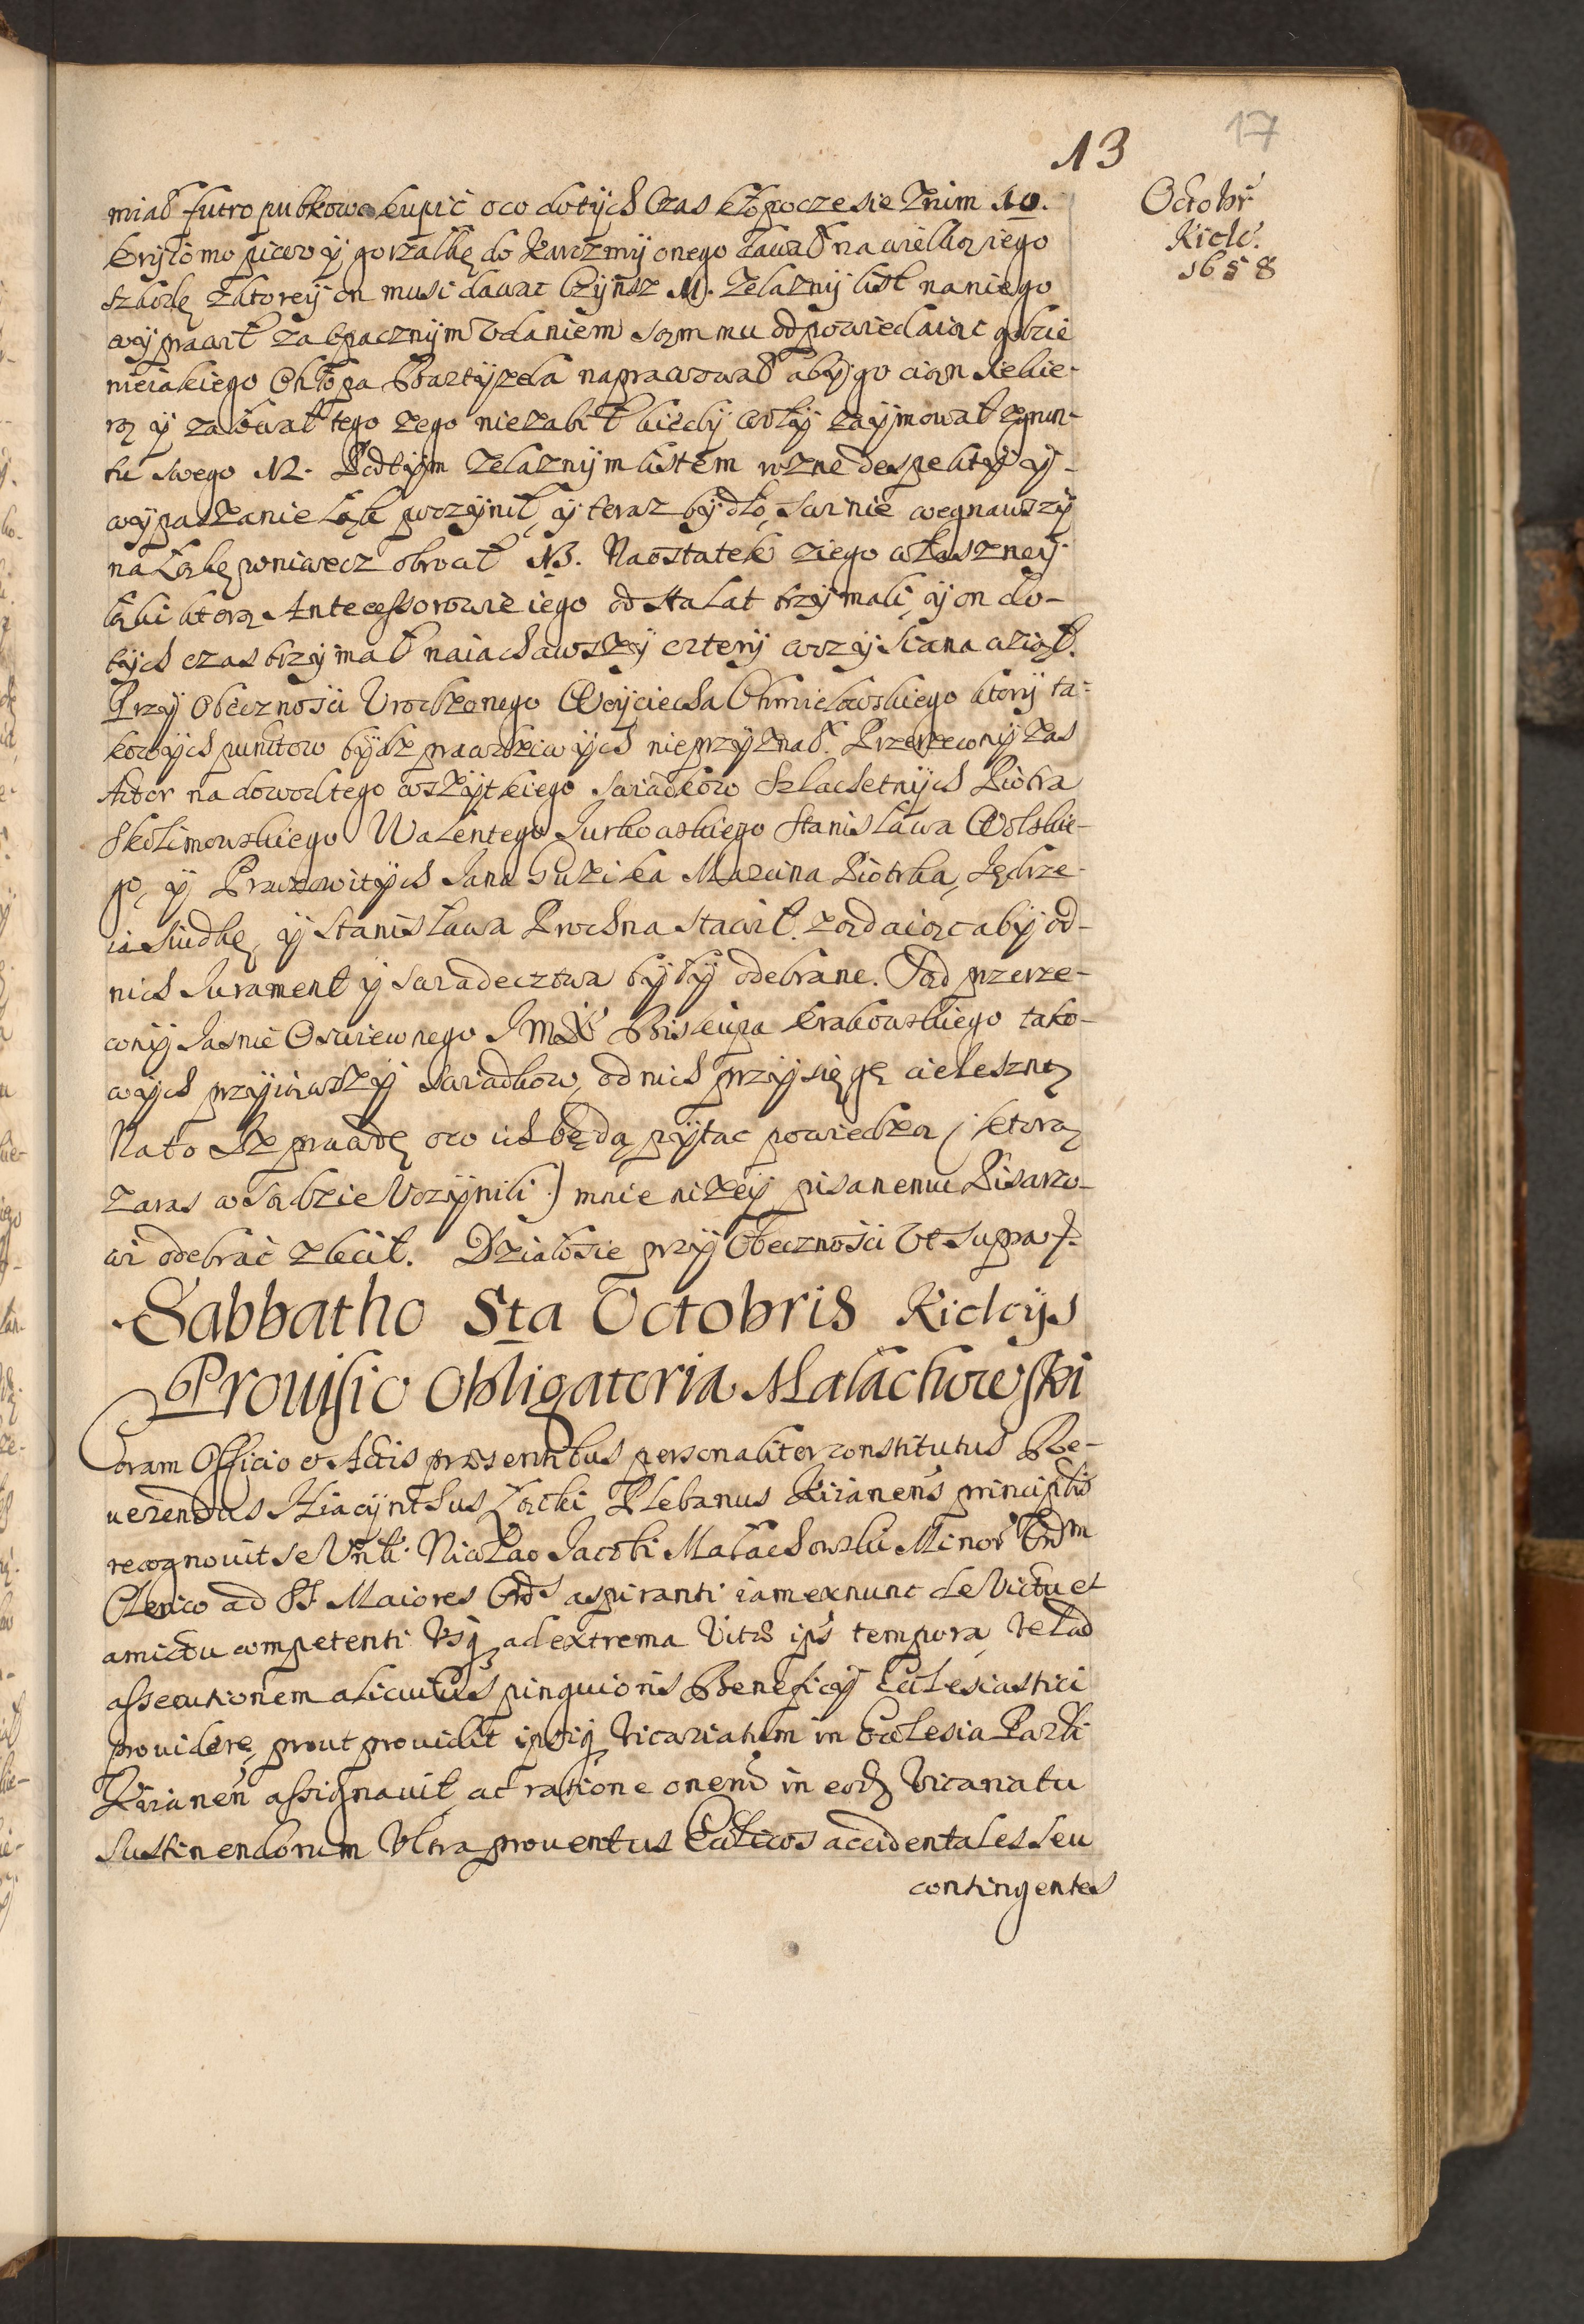 17
13
Octobr
Kielc.
1658
miał futro pupkowe kupić oco dotych Czas kłopocze sie Znim 10.
kryiomo piwo y gorzałkę do Karczmy onego dawał na wielką iego
szkodę Zktorey on musi dawac Czynsz 11. Zelazny list naniego
wyprawił za opacznym Vdaniem sąm mu odpowiedaiąc gdzie
nieiakiego Chłopa Bartyzela naprawował aby go ciąn siekie-
rą y załował tego zego niezabił kiedy woły zaymował zgrun-
tu swego 12. Pod tym Zelaznym listem rozne despekty y
wypaszanie łąk poczynił, y teraz bydło, swinie wegnawszy
na Łąkę wniwecz obrocił 13. Naostatek ziego własznej
łąki ktorą Antecessorowie iego od sta Lat trzymali, y on do-
tych czas trzymał naiachawszy cztery wozy Siana wziął.
Przy Obecznosci Vrodzonego Woyciecha Chmielowskiego ktory ta-
kowych punctow bydz prawdziwych nieprzyznał. Przerzeczony Zas
Actor na dowod tego wszytkiego swiadkow Szlachetnych Piotra
Skolimowskiego Walentego Jurkowskiego Stanisława Wolskie-
go, y Praczowitych Jana Guzika Marcina Piotrka, Jędrze-
ia Siudkę, y Stanisława Prochna stawił. ządaiąc aby od-
nich Jurament y swiadecztwa były odebrane. Sąd przerze-
czony Jasnie Oswieconego JMX Biskupa Krakowskiego tako-
wych przyiąwszy Swiadkow, od nich przysięgę cielesznę
Na to Isz prawdę oco ich będą pytac powiedzą (ktorą
zaras w Sądzie Vczynili) mnie nizey pisanemu Pisarzo-
wi odebrać zlecił. Działosie przy Obecznosci Vt supra.
Sabbatho 5ta Octobris Kielcys
Prouisio Obligatoria Małachowski
Coram Officio et Actis præsentibus personaliter constitutus Re-
uerendus Hiacynthus Łącki Plebanus Kiianens principalis
recognouit se Vnli Nicolao Jacobi Małachowski Minor Ordm
Clerico ad SS. Maiores Ords aspiranti iam exnunc de Victu et
amictu competenti Vsq ad extrema Vitæ ips tempora, Vel ad
assecutionem alicuius pinguioris Beneficij Ecclesiastici
prouidere, prout prouidit ipsiq Vicariatum in Ecclesia Parli
Kiianen assignauit ac ratione onerū in eod Vicariatu
sustinendorum Vltra prouentus Ecclicos accidentales seu
contingentes